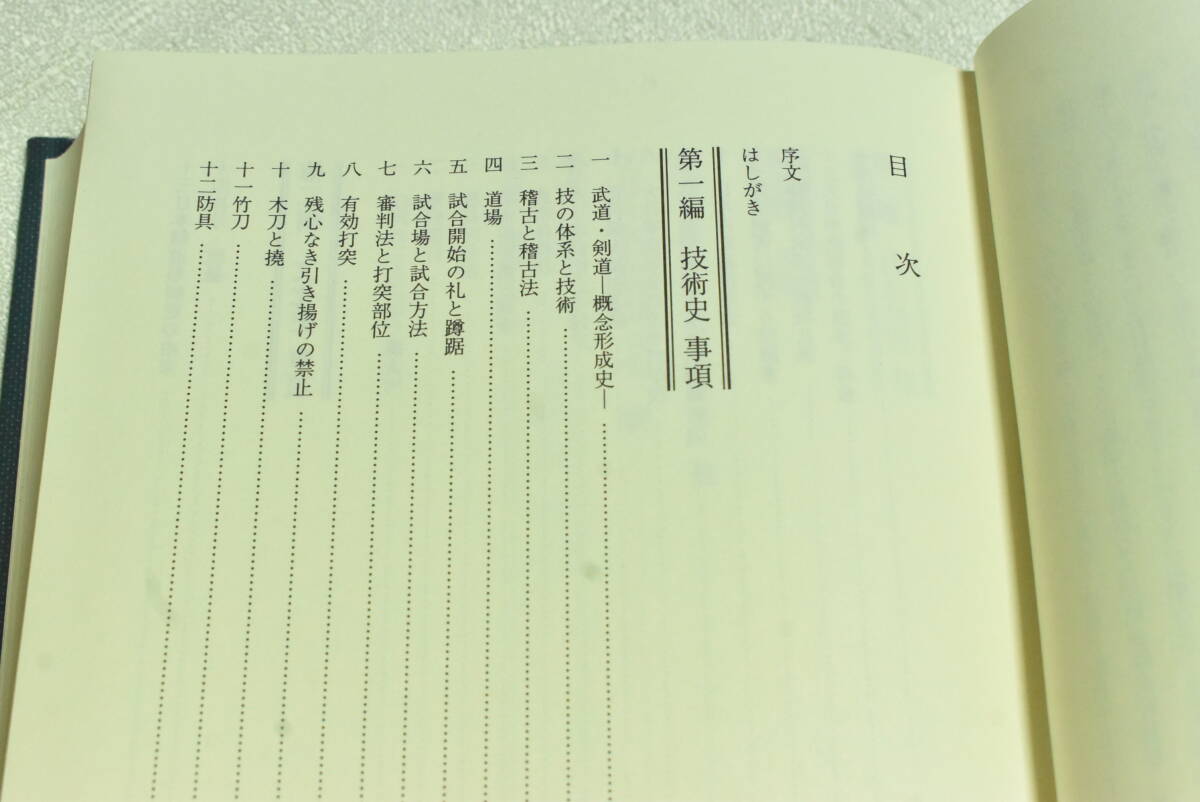 目次
序文
はしがき
第一編 技術史 事項
一 武道・剣道―概念形成史―
二 技の体系と技術
三 稽古と稽古法
四 道場
五 試合開始の礼と蹲踞
六 試合場と試合方法
七 審判法と打突部位
八 有効打突
九 残心なき引き揚げの禁止
十 木刀と撓
十一 竹刀
十二 防具